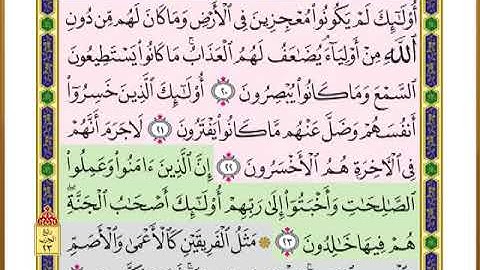 أُوْلَٰٓئِكَ لَمْ يَكُونُوا۟ مُعْجِزِينَ فِى ٱلْأَرْضِ وَمَا كَانَ لَهُم مِّن دُونِ
ٱللَّهِ مِنْ أَوْلِيَآءَ ۘ يُضَٰعَفُ لَهُمُ ٱلْعَذَابُ ۚ مَا كَانُوا۟ يَسْتَطِيعُونَ
ٱلسَّمْعَ وَمَا كَانُوا۟ يُبْصِرُونَ ٢٠ أُوْلَٰٓئِكَ ٱلَّذِينَ خَسِرُوٓا۟
أَنفُسَهُمْ وَضَلَّ عَنْهُم مَّا كَانُوا۟ يَفْتَرُونَ ٢١ لَا جَرَمَ أَنَّهُمْ
فِى ٱلْأَخِرَةِ هُمُ ٱلْأَخْسَرُونَ ٢٢ إِنَّ ٱلَّذِينَ ءَامَنُوا۟ وَعَمِلُوا۟
ٱلصَّٰلِحَٰتِ وَأَخْبَتُوٓا۟ إِلَىٰ رَبِّهِمْ أُوْلَٰٓئِكَ أَصْحَٰبُ ٱلْجَنَّةِ ۖ
هُمْ فِيهَا خَٰلِدُونَ ٢٣ ۞ مَثَلُ ٱلْفَرِيقَيْنِ كَٱلْأَعْمَىٰ وَٱلْأَصَمِّ
ربع
الحزب
٢٣